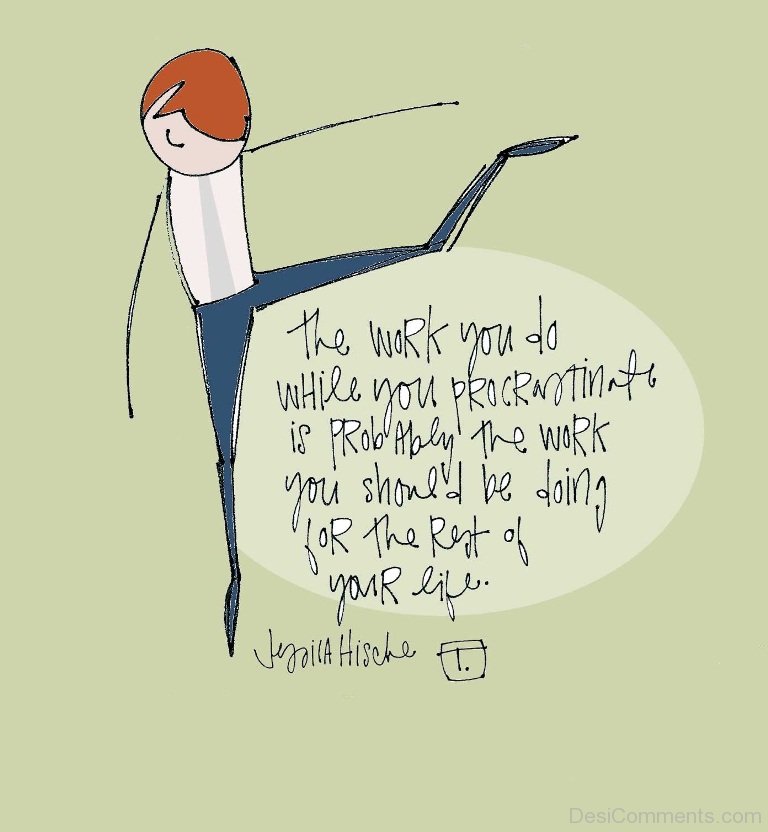 the work you do
while you procrastinate
is probably the work
you should be doing
for the rest of
your life.
Jessica Hische T.
DesiComments.com